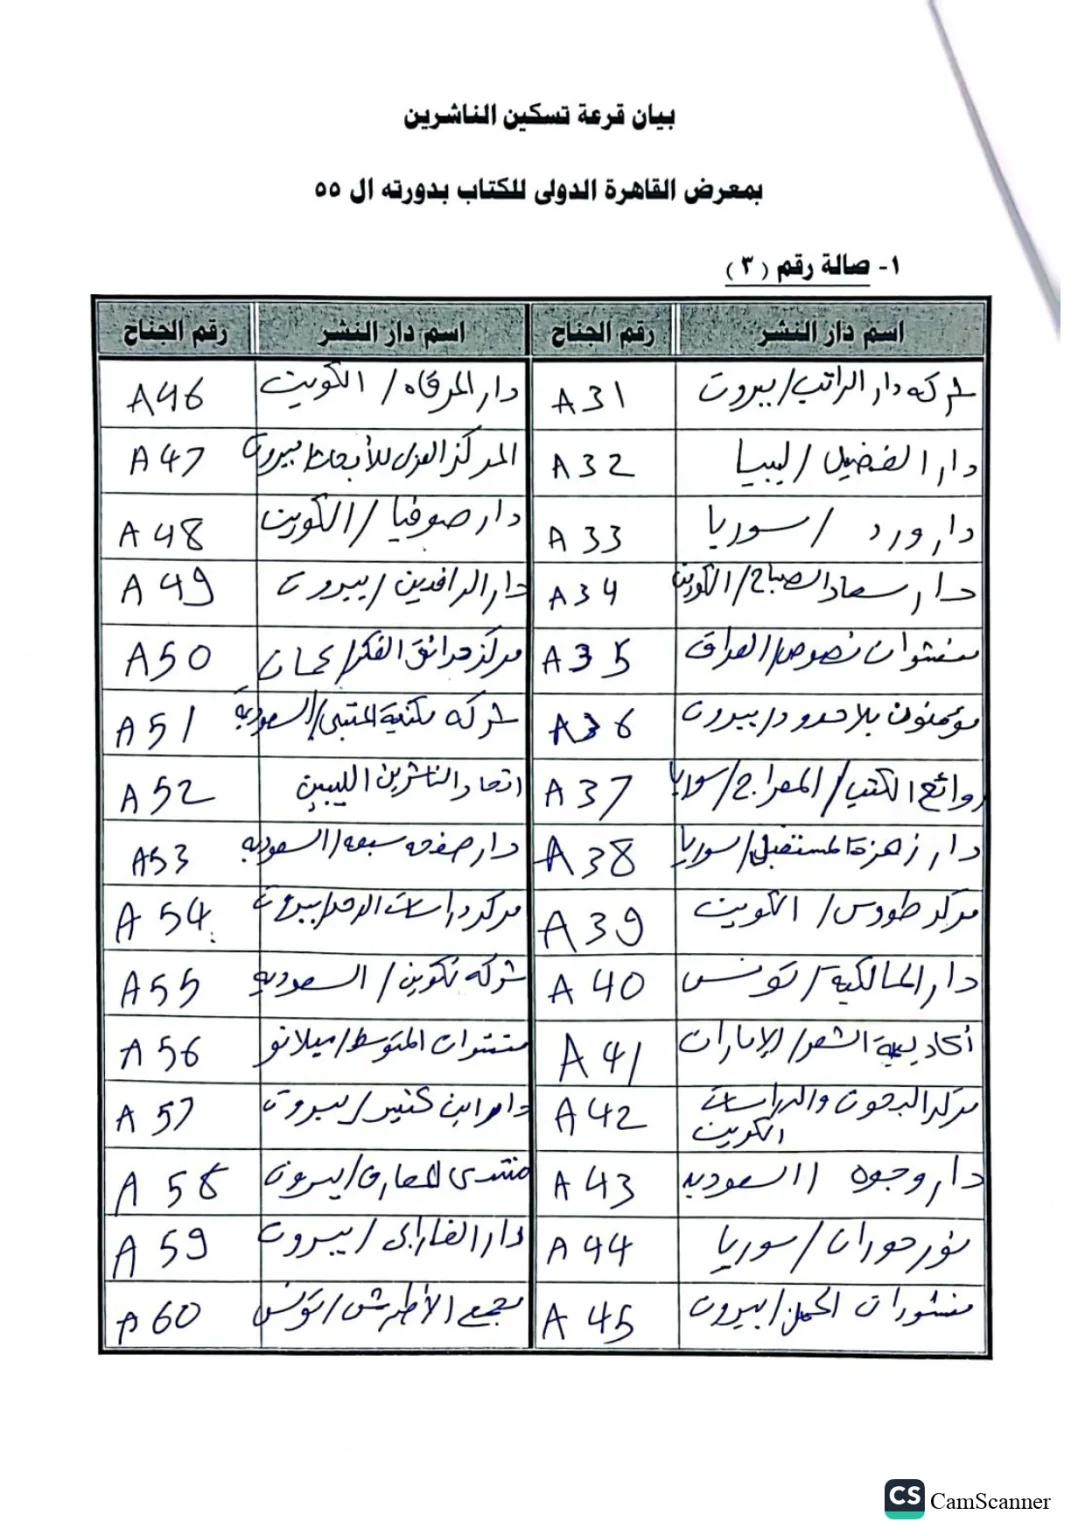 بيان قرعة تسكين الناشرين
بمعرض القاهرة الدولى للكتاب بدورته ال ٥٥
١- صالة رقم (٣)
اسم دار النشر رقم الجناح اسم دار النشر رقم الجناح
شركه دار الراتب/بيروت A31 دار المرقاه/ الكويت A46
دار الفضيل/ليبيا A32 المركز العربى للأبحاث بيروت A47
دار ورد/سوريا A33 دار صوفيا/الكويت A48
دار سعاد الصباح/الكويت A34 دار الرافدين/بيروت A49
منشورات نصوص/العراق A35 مركز حدائق الفكر/عمان A50
مؤمنون بلا حدود/بيروت A36 شركه مكتبة المتنبى/السعوديه A51
روائع الكتب/المعراج/سوريا A37 اتحاد الناشرين الليبين A52
دار زهرة المستقبل/سوريا A38 دار صفحه سبعه/السعوديه A53
مركز طووس/الكويت A39 مركز دراسات الوحد/بيروت A54
دار المالكية/تونس A40 شركه تكوين/السعوديه A55
أكاديمية الشعر/الإمارات A41 منشورات المتوسط/ميلانو A56
مركز البحوث والدراسات A42 دار ابن كثير/بيروت A57
الكويت
دار وجوه/السعوديه A43 منتدى المعارف/بيروت A58
نور حوران/سوريا A44 دار الفارابى/بيروت A59
منشورات الجمل/بيروت A45 مجمع الأطرش/تونس A60
CS CamScanner